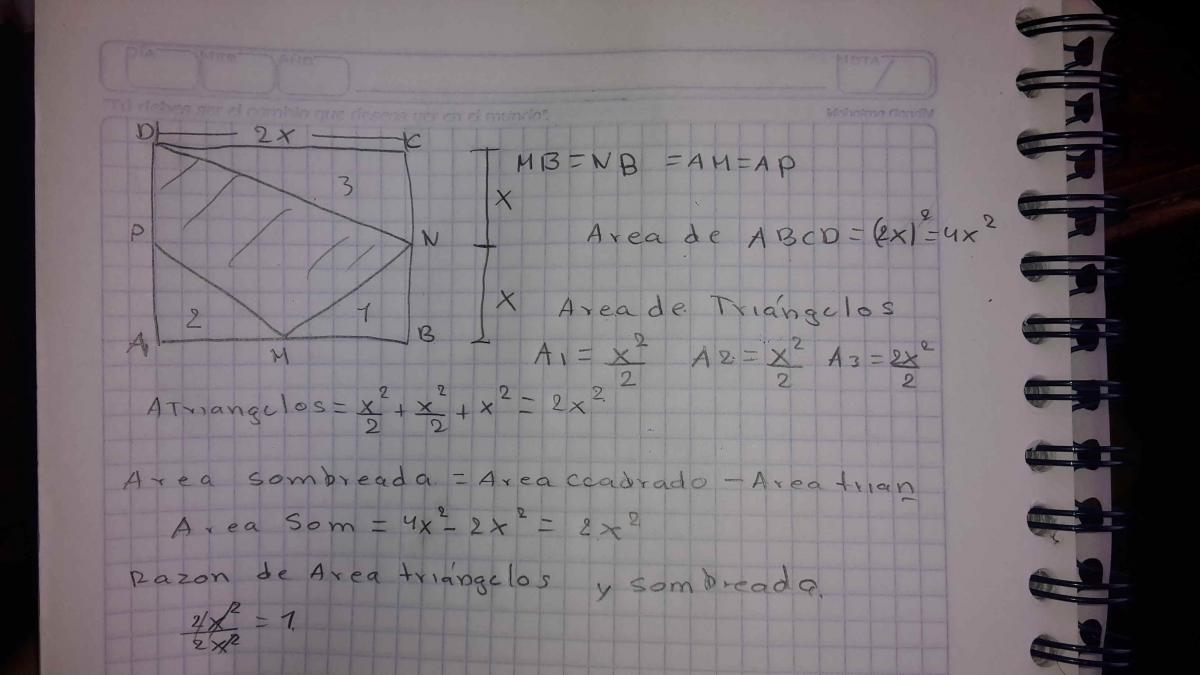 DÍA MES AÑO NOTA
"Tú debes ser el cambio que deseas ver en el mundo". Mahatma Gandhi
D 2x C
3 x MB = NB = AM = AP
P N
Area de ABCD = (2x)² = 4x²
2 1 x Area de Triángelos
A M B
A1 = x²/2 A2 = x²/2 A3 = 2x²/2
ATriangelos = x²/2 + x²/2 + x² = 2x²
Area sombreada = Area ccadrado - Area trian
Area Som = 4x² - 2x² = 2x²
Razon de Area triángelos y sombreada.
2x²/2x² = 1